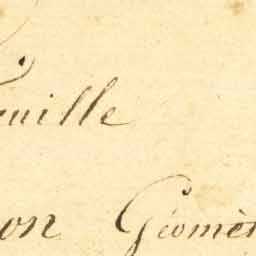 euille
on Géomèt